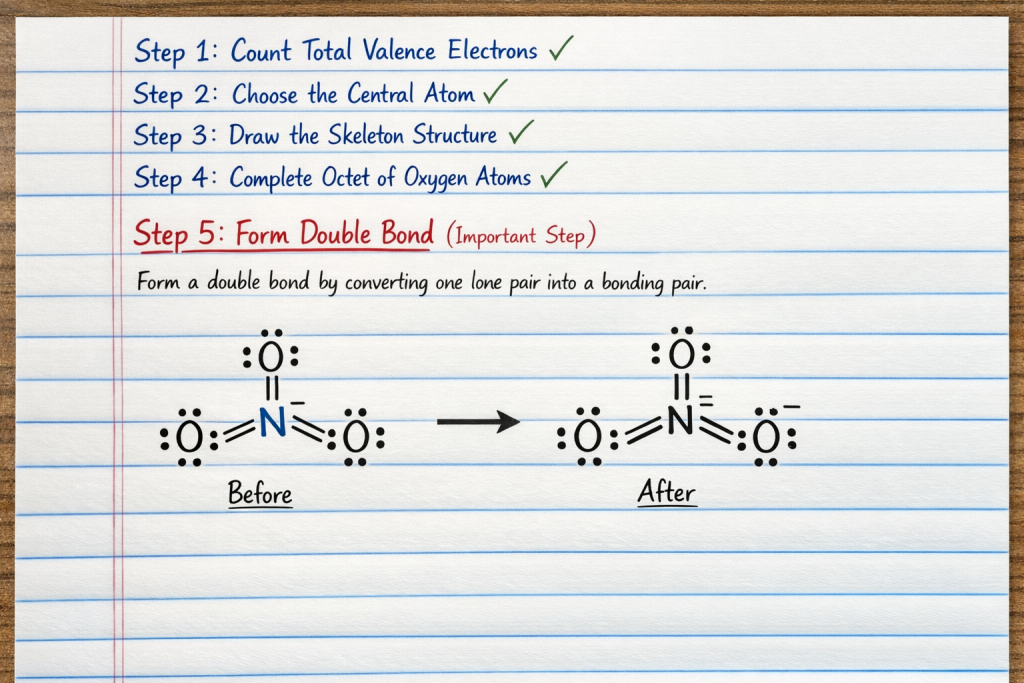 Step 1: Count Total Valence Electrons ✓
Step 2: Choose the Central Atom ✓
Step 3: Draw the Skeleton Structure ✓
Step 4: Complete Octet of Oxygen Atoms ✓
Step 5: Form Double Bond (Important Step)
Form a double bond by converting one lone pair into a bonding pair.
O O
N − N =
O O O O −
Before After